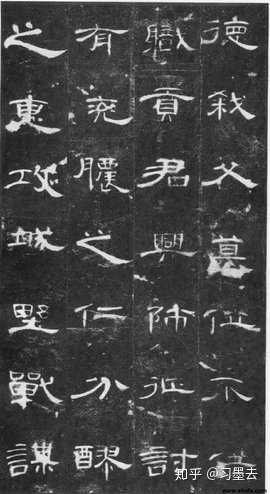 德弑父篡位不供
職貢君興師征討
有兖膿之仁分醪
之惠攻城野戰謀
知乎 @习墨去